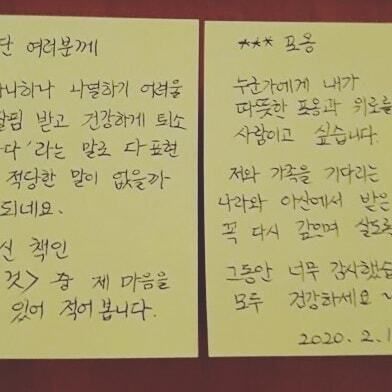 단 여러분께
나하나 나열하기 어려울
살핌 받고 건강하게 퇴소
다'라는 말로 다 표현
적당한 말이 없을까
되네요.
신 책인
것> 중 제 마음을
있어 적어 봅니다.
*** 포옹
누군가에게 내가
따뜻한 포옹과 위로를
사람이고 싶습니다.
저와 가족을 기다리는
나라와 아산에서 받은
꼭 다시 갚으며 살도록
그동안 너무 감사했습
모두 건강하세요
2020. 2. 1